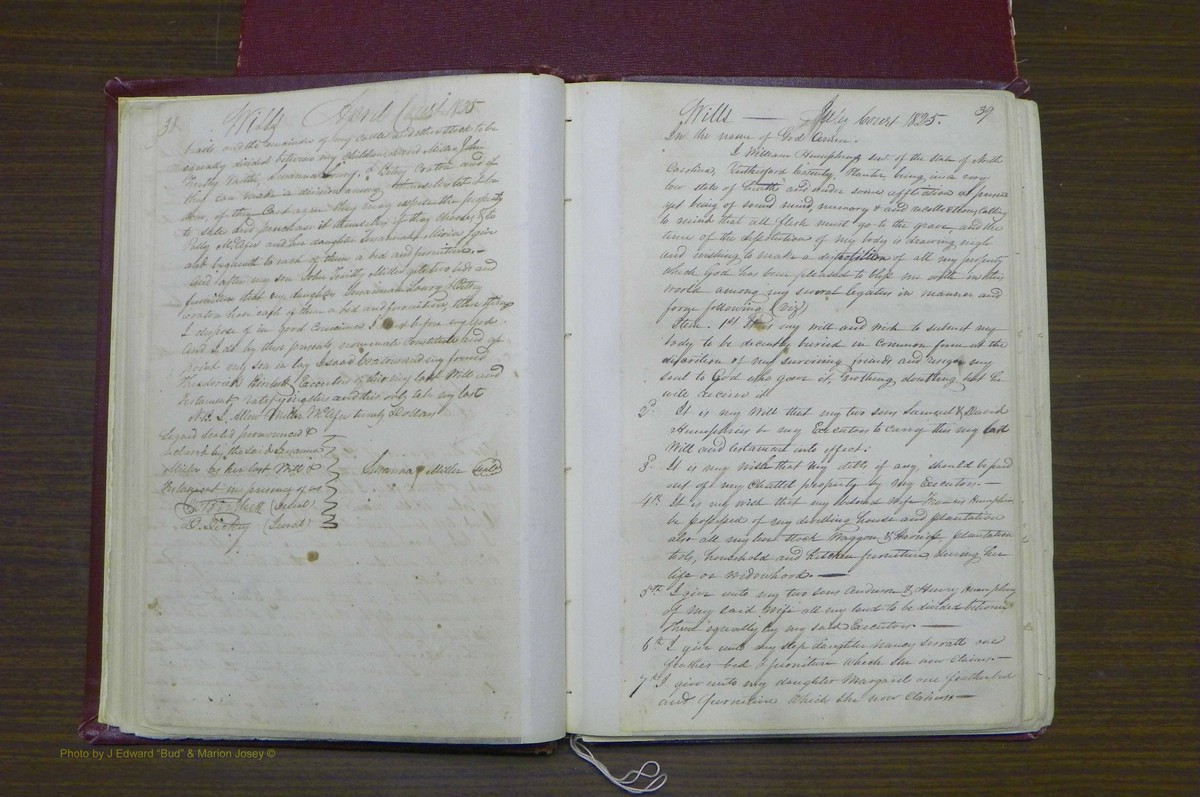 38 Wills April Court 1825
beads and the remainder of my cattle and other stock to be
equally divided between my children David Miller John
Trinity Miller, Susannah Lowry, & Betsy Coxton and if
they can make a division among themselves let them
do so, if they Cant agree they may expose the property
to sale and purchase it themselves if they choose, & to
Polly McAfee and her daughter Susannah Moria I give
and bequeath to each of them a bed and furniture.—
and after my son John Trinity Miller gets two beds and
furniture that my daughter Susannah Lowry & Betsy
Coxton have each of them a bed and furniture, these things
I dispose of in good Conscience I trust before my God
And I do by these presents nominate Constitute and ap
point my son in law Isaac and my friend
Theoderick Birchett Executors of this my last Will and
Testament ratifying this and this only to be my last
NB. I allow Miller McAfee twenty Dollars
Signed sealed pronounced &
declared by the said Susannah
Miller as her last Will &
Testament in presence of us
Susannah Miller Seal
T. Birchett (Jurat)
D. Dickey (Jurat)
Wills — July Court 1825. 39
In the name of God Amen.
I William Humphreys senr of the state of North
Carolina, Rutherford County, Planter, being in a very
low state of health and under some affliction at present
yet being of sound mind, memory & and recollection, calling
to mind that all flesh must go to the grave, and the
time of the dissolution of my body is drawing nigh
and wishing to make a disposition of all my property
which God has been pleased to bless me with in this
world among my several legatees in manner and
form following (viz)
Item. 1st It is my will and wish to submit my
body to be decently buried in Common form at the
discretion of my surviving friends and resign my
soul to God who gave it, nothing doubting but he
will receive it
2d. It is my Will that my two sons Samuel & David
Humphries be my Executors to carry this my last
Will and testament into effect.
3d. It is my Will that my debts if any, should be paid
out of my Chattel property by my Executors.—
4th It is my wish that my beloved wife Francis Humphries
be possessed of my dwelling house and plantation
also all my live stock Waggon & Harness, plantation
tools, household and Kitchen furniture, during her
life or widowhood.—
5th I give unto my two sons Andrew & Henry Humphreys
of my said Wife all my land to be divided between
them equally by my said Executors—
6th I give unto my step daughter Nancy one
feather bed & furniture which she now claims.—
7th I give unto my daughter Margaret one featherbed
and furniture which she now Claims—
Photo by J Edward "Bud" & Marion Josey ©